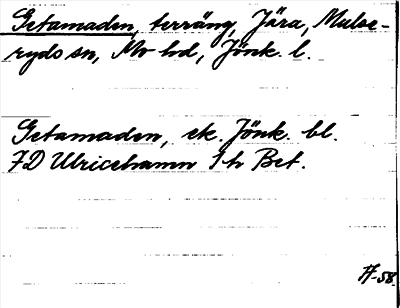 Getamaden, terräng, Jära, Malse-
ryds sn, Mo hd, Jönk. l.
Getamaden, ek. Jönk. bl.
7D Ulricehamn 1 h Bet.